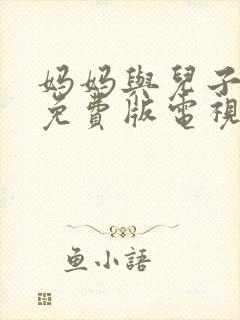 妈妈與兒子
免費版電視
魚小語